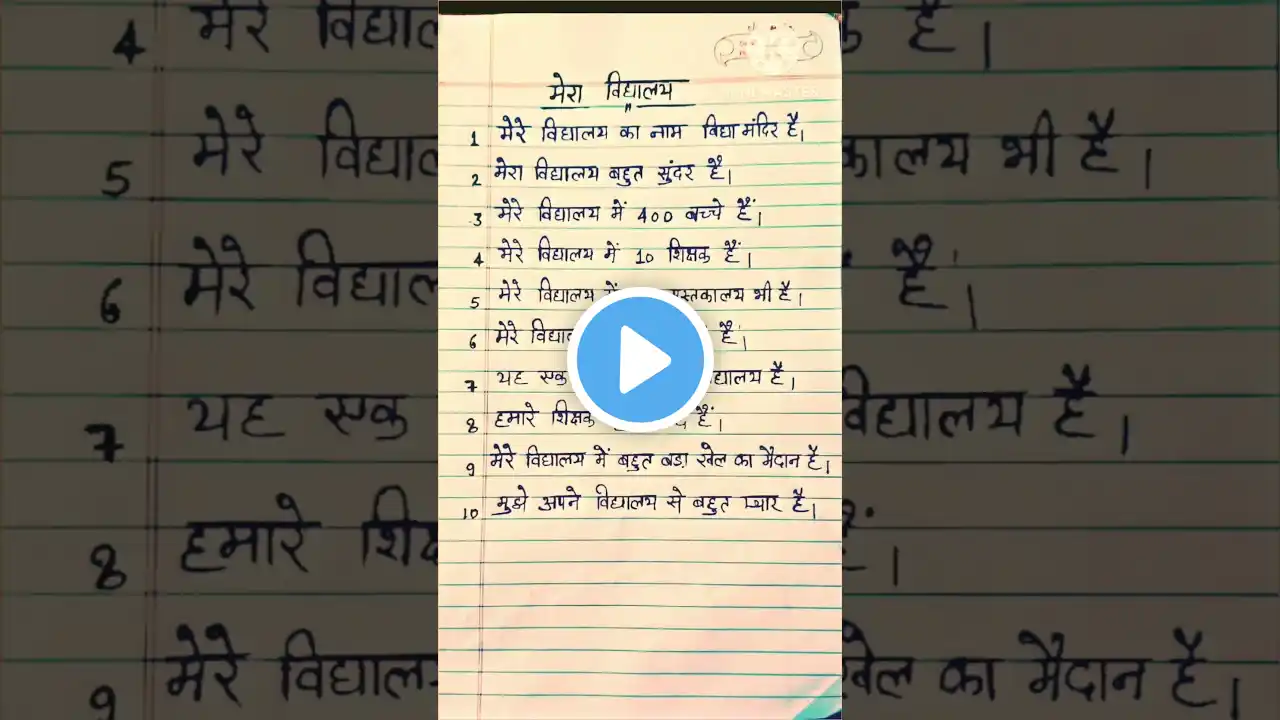 मेरा विद्यालय
1 मेरे विद्यालय का नाम विद्या मंदिर है।
2 मेरा विद्यालय बहुत सुंदर है।
3 मेरे विद्यालय में 400 बच्चे हैं।
4 मेरे विद्यालय में 10 शिक्षक हैं।
5 मेरे विद्यालय में पुस्तकालय भी है।
6 मेरे विद्यालय है।
7 यह एक विद्यालय है।
8 हमारे शिक्षक हैं।
9 मेरे विद्यालय में बहुत बड़ा खेल का मैदान है।
10 मुझे अपने विद्यालय से बहुत प्यार है।